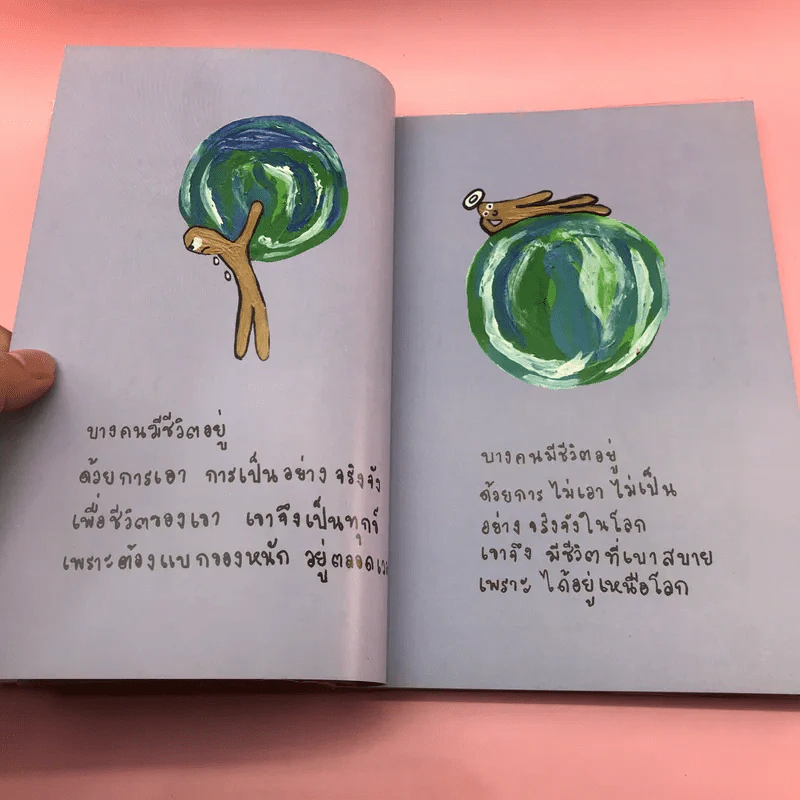 บางคนมีชีวิตอยู่
ด้วยการเอา การเป็นอย่าง จริงจัง
เพื่อชีวิตของเขา เขาจึงเป็นทุกข์
เพราะต้องแบกของหนัก อยู่ตลอด
บางคนมีชีวิตอยู่
ด้วยการ ไม่เอา ไม่เป็น
อย่าง จริงจังในโลก
เขาจึง มีชีวิต ที่เบา สบาย
เพราะ ได้อยู่เหนือโลก